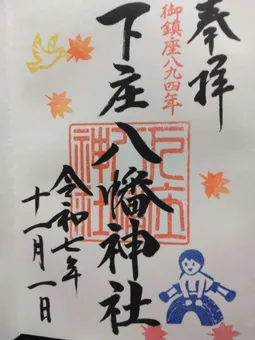 奉拝
御鎮座八九四年
下庄八幡神社
下庄八幡神社
令和七年
十一月一日